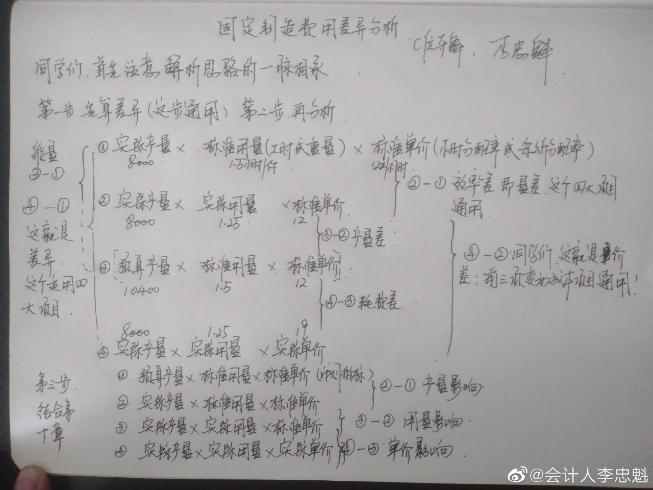 固定制造费用差异分析
李忠魁
同学们,首先注意解析思路的一脉相承
第一步 先算差异(这步通用) 第二步,再分析
① 实际产量 × 标准用量(工时或重量) × 标准单价(小时分配率或每公斤分配率)
8000 1.5小时/件
③-①
④-①
这就是
差异
这个适用四
大项目
② 实际产量 × 实际用量 × 标准单价
8000 1.25 12
②-① 效率差 即量差,这个四大项目
通用
③-② 产量差
③ 预算产量 × 标准用量 × 标准单价
10400 1.5 12
④-② 同学们,这就是价
差:前三项变动成本项目通用!
④-③ 耗费差
8000 1.25 19
④ 实际产量 × 实际用量 × 实际单价
第三步
结合第
十章
① 预算产量 × 标准用量 × 标准单价
② 实际产量 × 标准用量 × 标准单价
②-① 产量影响
③ 实际产量 × 实际用量 × 标准单价
③-② 用量影响
④ 实际产量 × 实际用量 × 实际单价
④-③ 单价影响
@会计人李忠魁